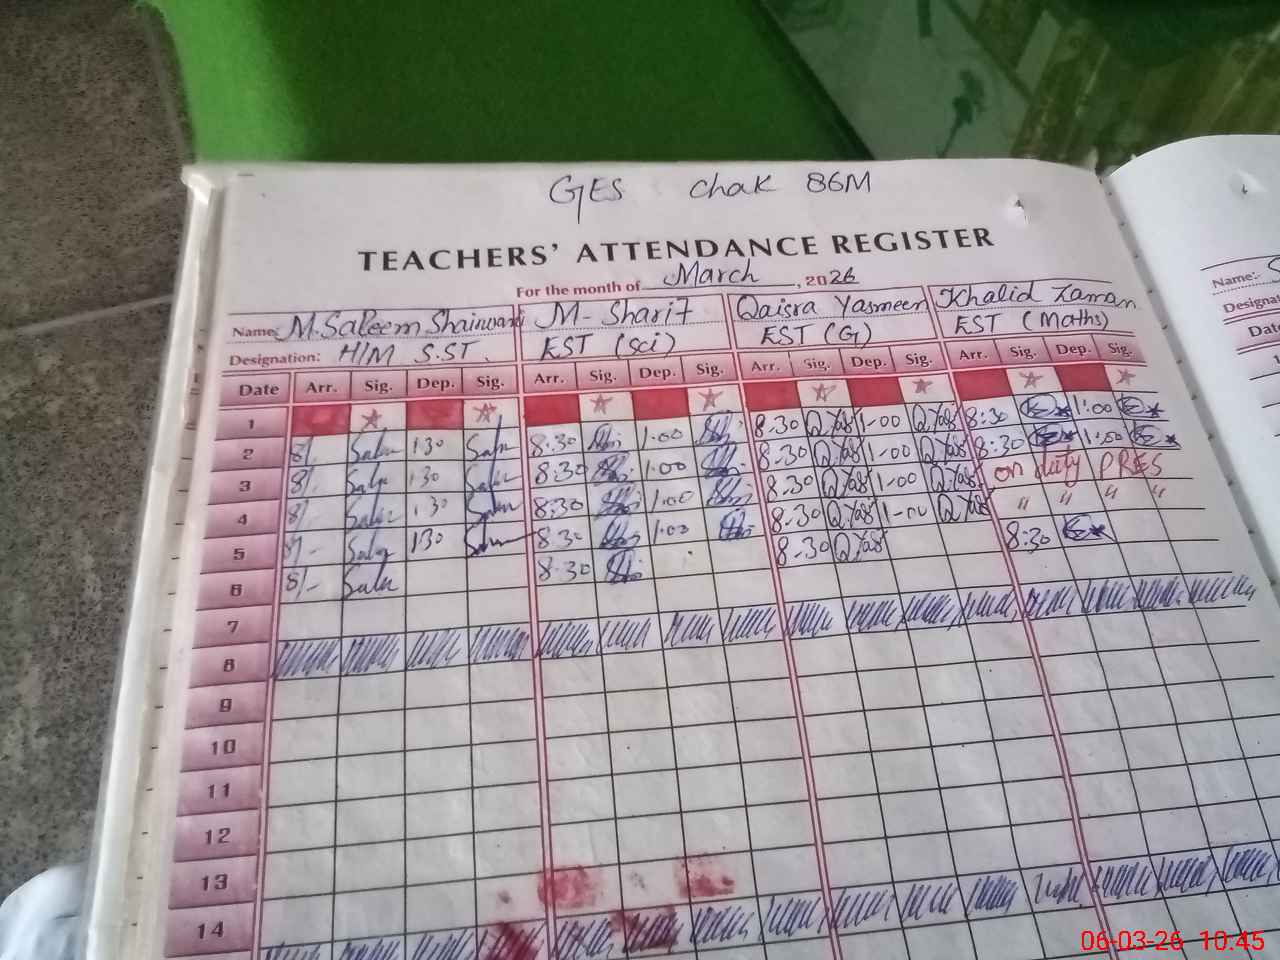 GES Chak 86M
TEACHERS' ATTENDANCE REGISTER
For the month of March, 2026
Name: M. Saleem Shairwani M- Sharif Qaisra Yasmeen Khalid Zaman
Designation: H/M S.ST. EST (Sci) EST (G) EST (Maths)
Date Arr. Sig. Dep. Sig. Arr. Sig. Dep. Sig. Arr. Sig. Dep. Sig. Arr. Sig. Dep. Sig.
1
2 8/- 130 8:30 1:00 8-30 Q.Yas 1-00 Q.Yas 8:30 1:00
3 8/- 130 8:30 1:00 8-30 Q.Yas 1-00 Q.Yas 8:30 1:00
4 8/- 130 8:30 1:00 8.30 Q.Yas 1-00 Q.Yas on duty PRES
5 8/- 130 8:30 1:00 8-30 Q.Yas 1-00 Q.Yas " " " "
6 8/- 8:30 8-30 Q.Yas 8:30
7
8
9
10
11
12
13
14
Name:
Date
06-03-26 10.45